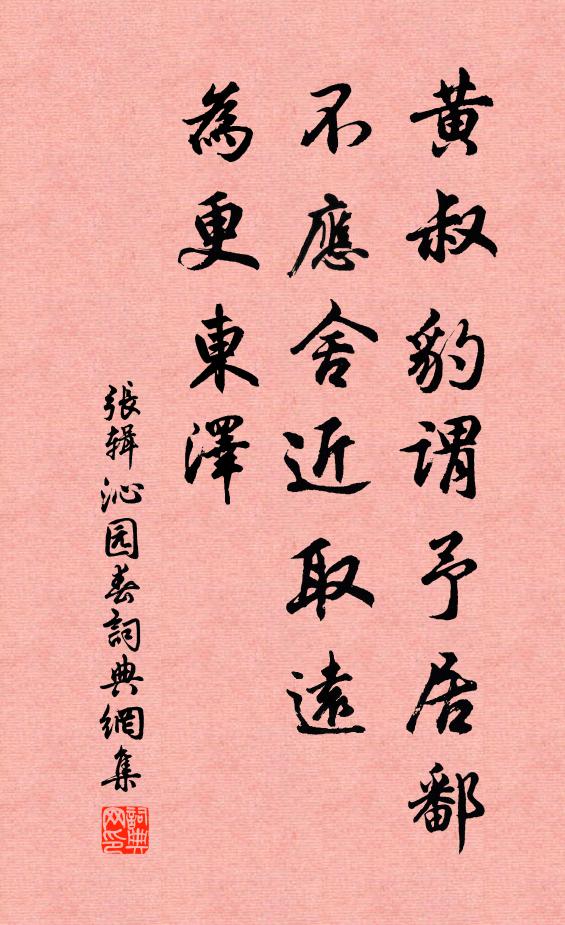 黄叔豹謂予居鄱
不應舍近取遠
為更東澤
張辑沁园春詞典網集
詞典网印